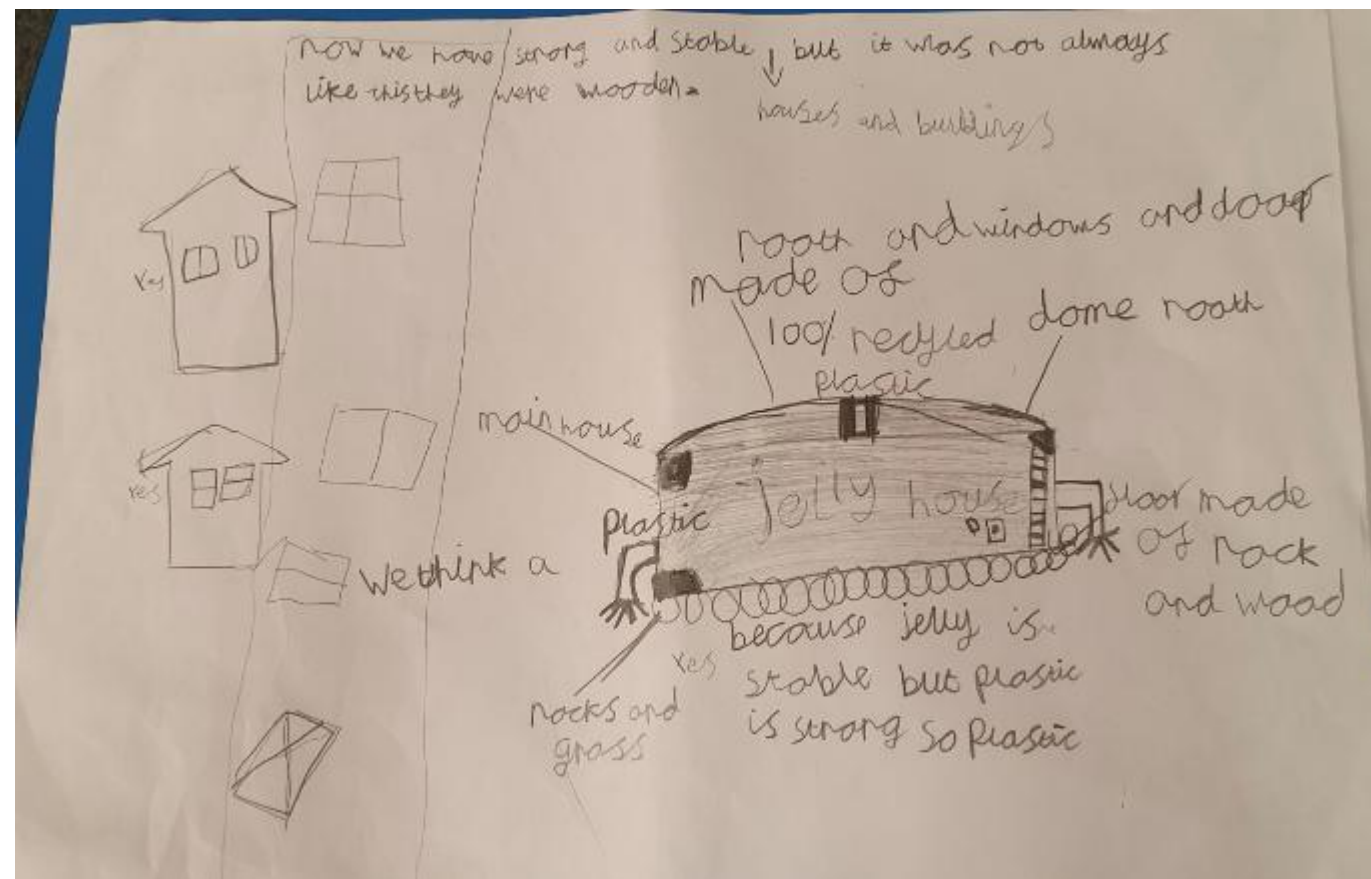 now we have strong and stable ↓ but it was not always
like this they were wooden.
houses and buildings
Yes
rooth and windows and door
made of
100/ recycled
plastic
dome rooth
main house
Yes
plastic
jelly house
floor made
of rock
and wood
We think a
because jelly is
Yes
stable but plastic
is strong so plastic
rocks and
grass